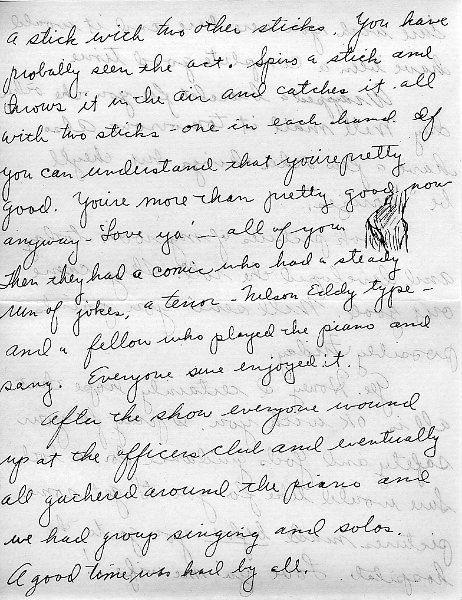 a stick with two other sticks. You have
probally seen the act. Spins a stick and
throws it in the air and catches it all
with two sticks - one in each hand. If
you can understand that you're pretty
good. You're more than pretty good now
anyway - 'Love ya' - all of you
Then they had a comic who had a steady
run of jokes, a tenor - Nelson Eddy type -
and a fellow who played the piano and
sang. Everyone sure enjoyed it.
After the show everyone wound
up at the officers club and eventually
all gathered around the piano and
we had group singing and solos.
A good time was had by all.